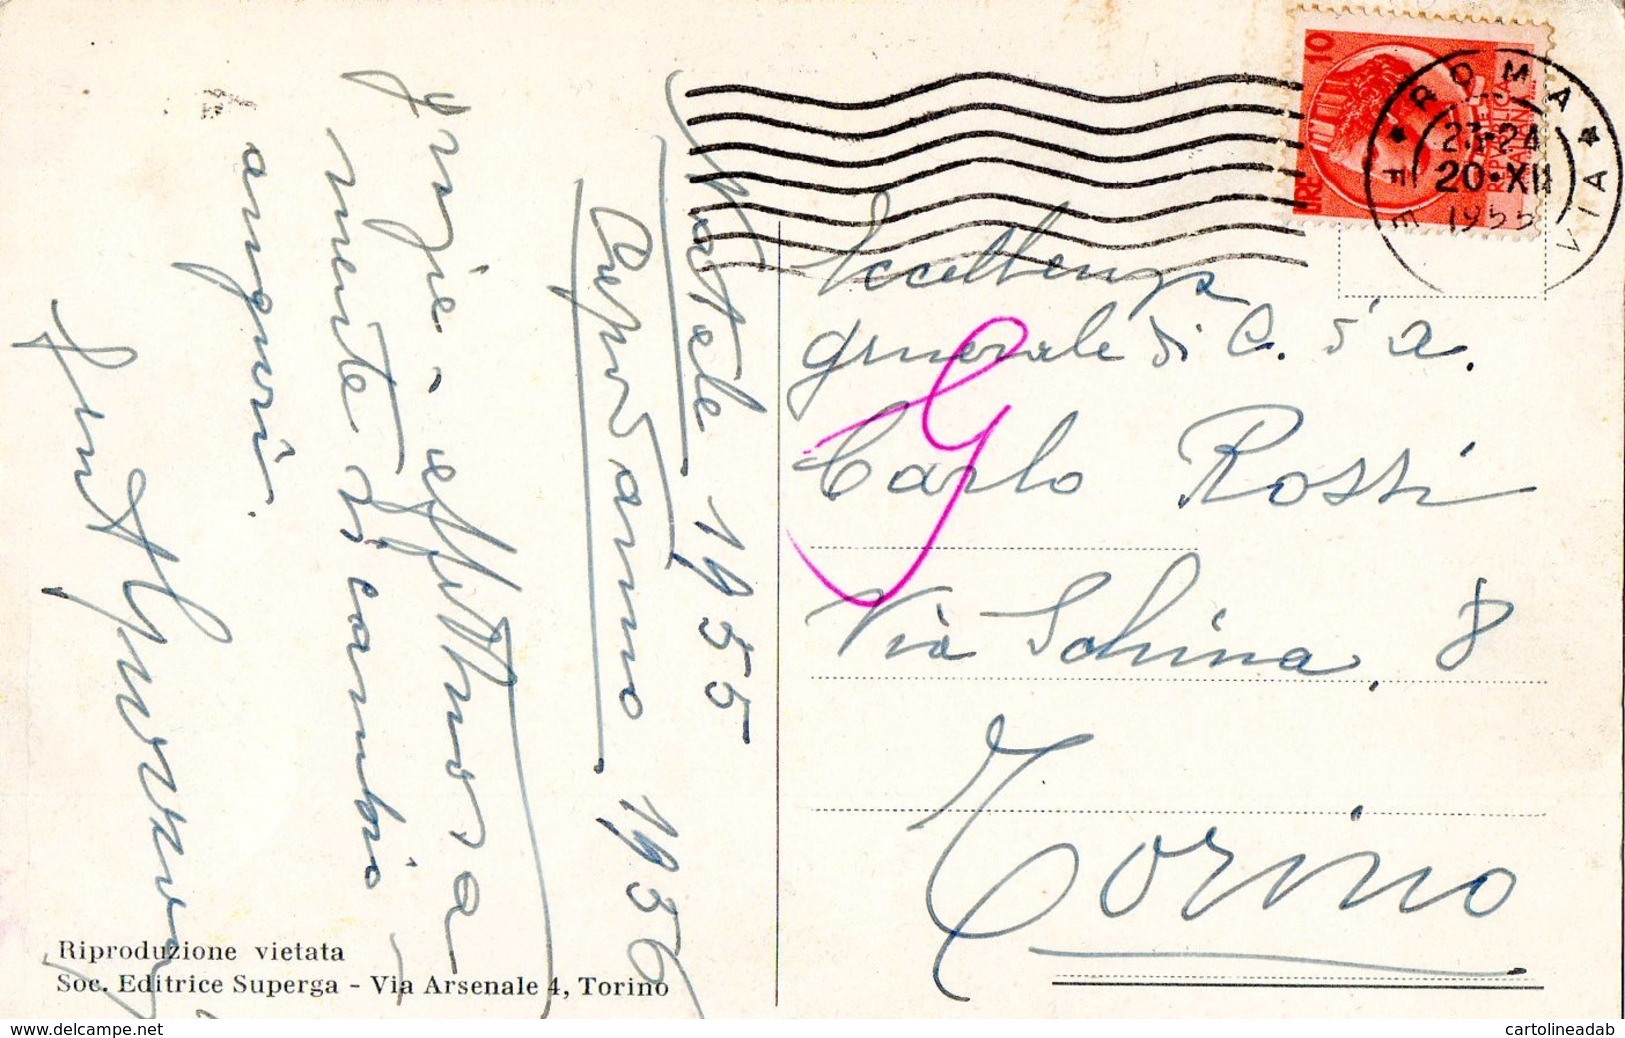 Natale 1955
Capodanno 1956
Grazie, e affettuosa
mente ricambio
auguri.
Eccellenza
generale di C. d'a.
Carlo Rossi
Via Schina, 8
Torino
G
LIRE 10
REPUBBLICA
ITALIANA
ROMA
FERROVIA
23-24
20·XII
1955
Riproduzione vietata
Soc. Editrice Superga - Via Arsenale 4, Torino
www.delcampe.net
cartolineadab